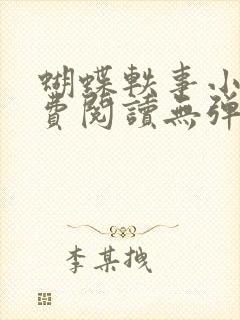 蝴蝶軼事小
費閱讀無彈
李某拽